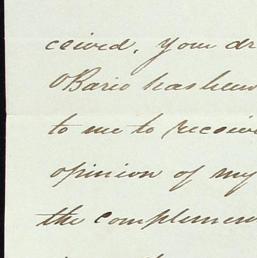 ceived, Your dr
O'Bario has been
to me to receive
opinion of my
the complemen